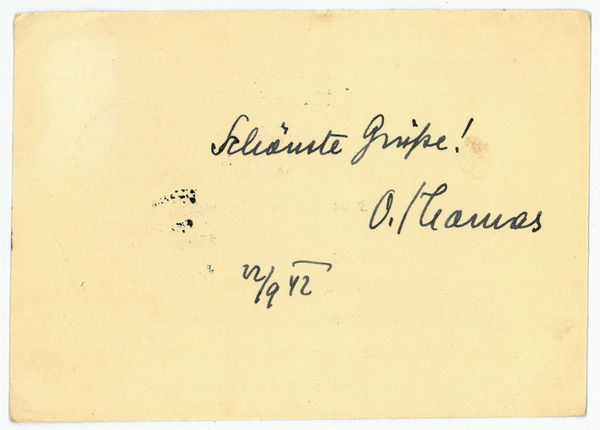 Schönste Grüße!
O. Thomas
22/9 42